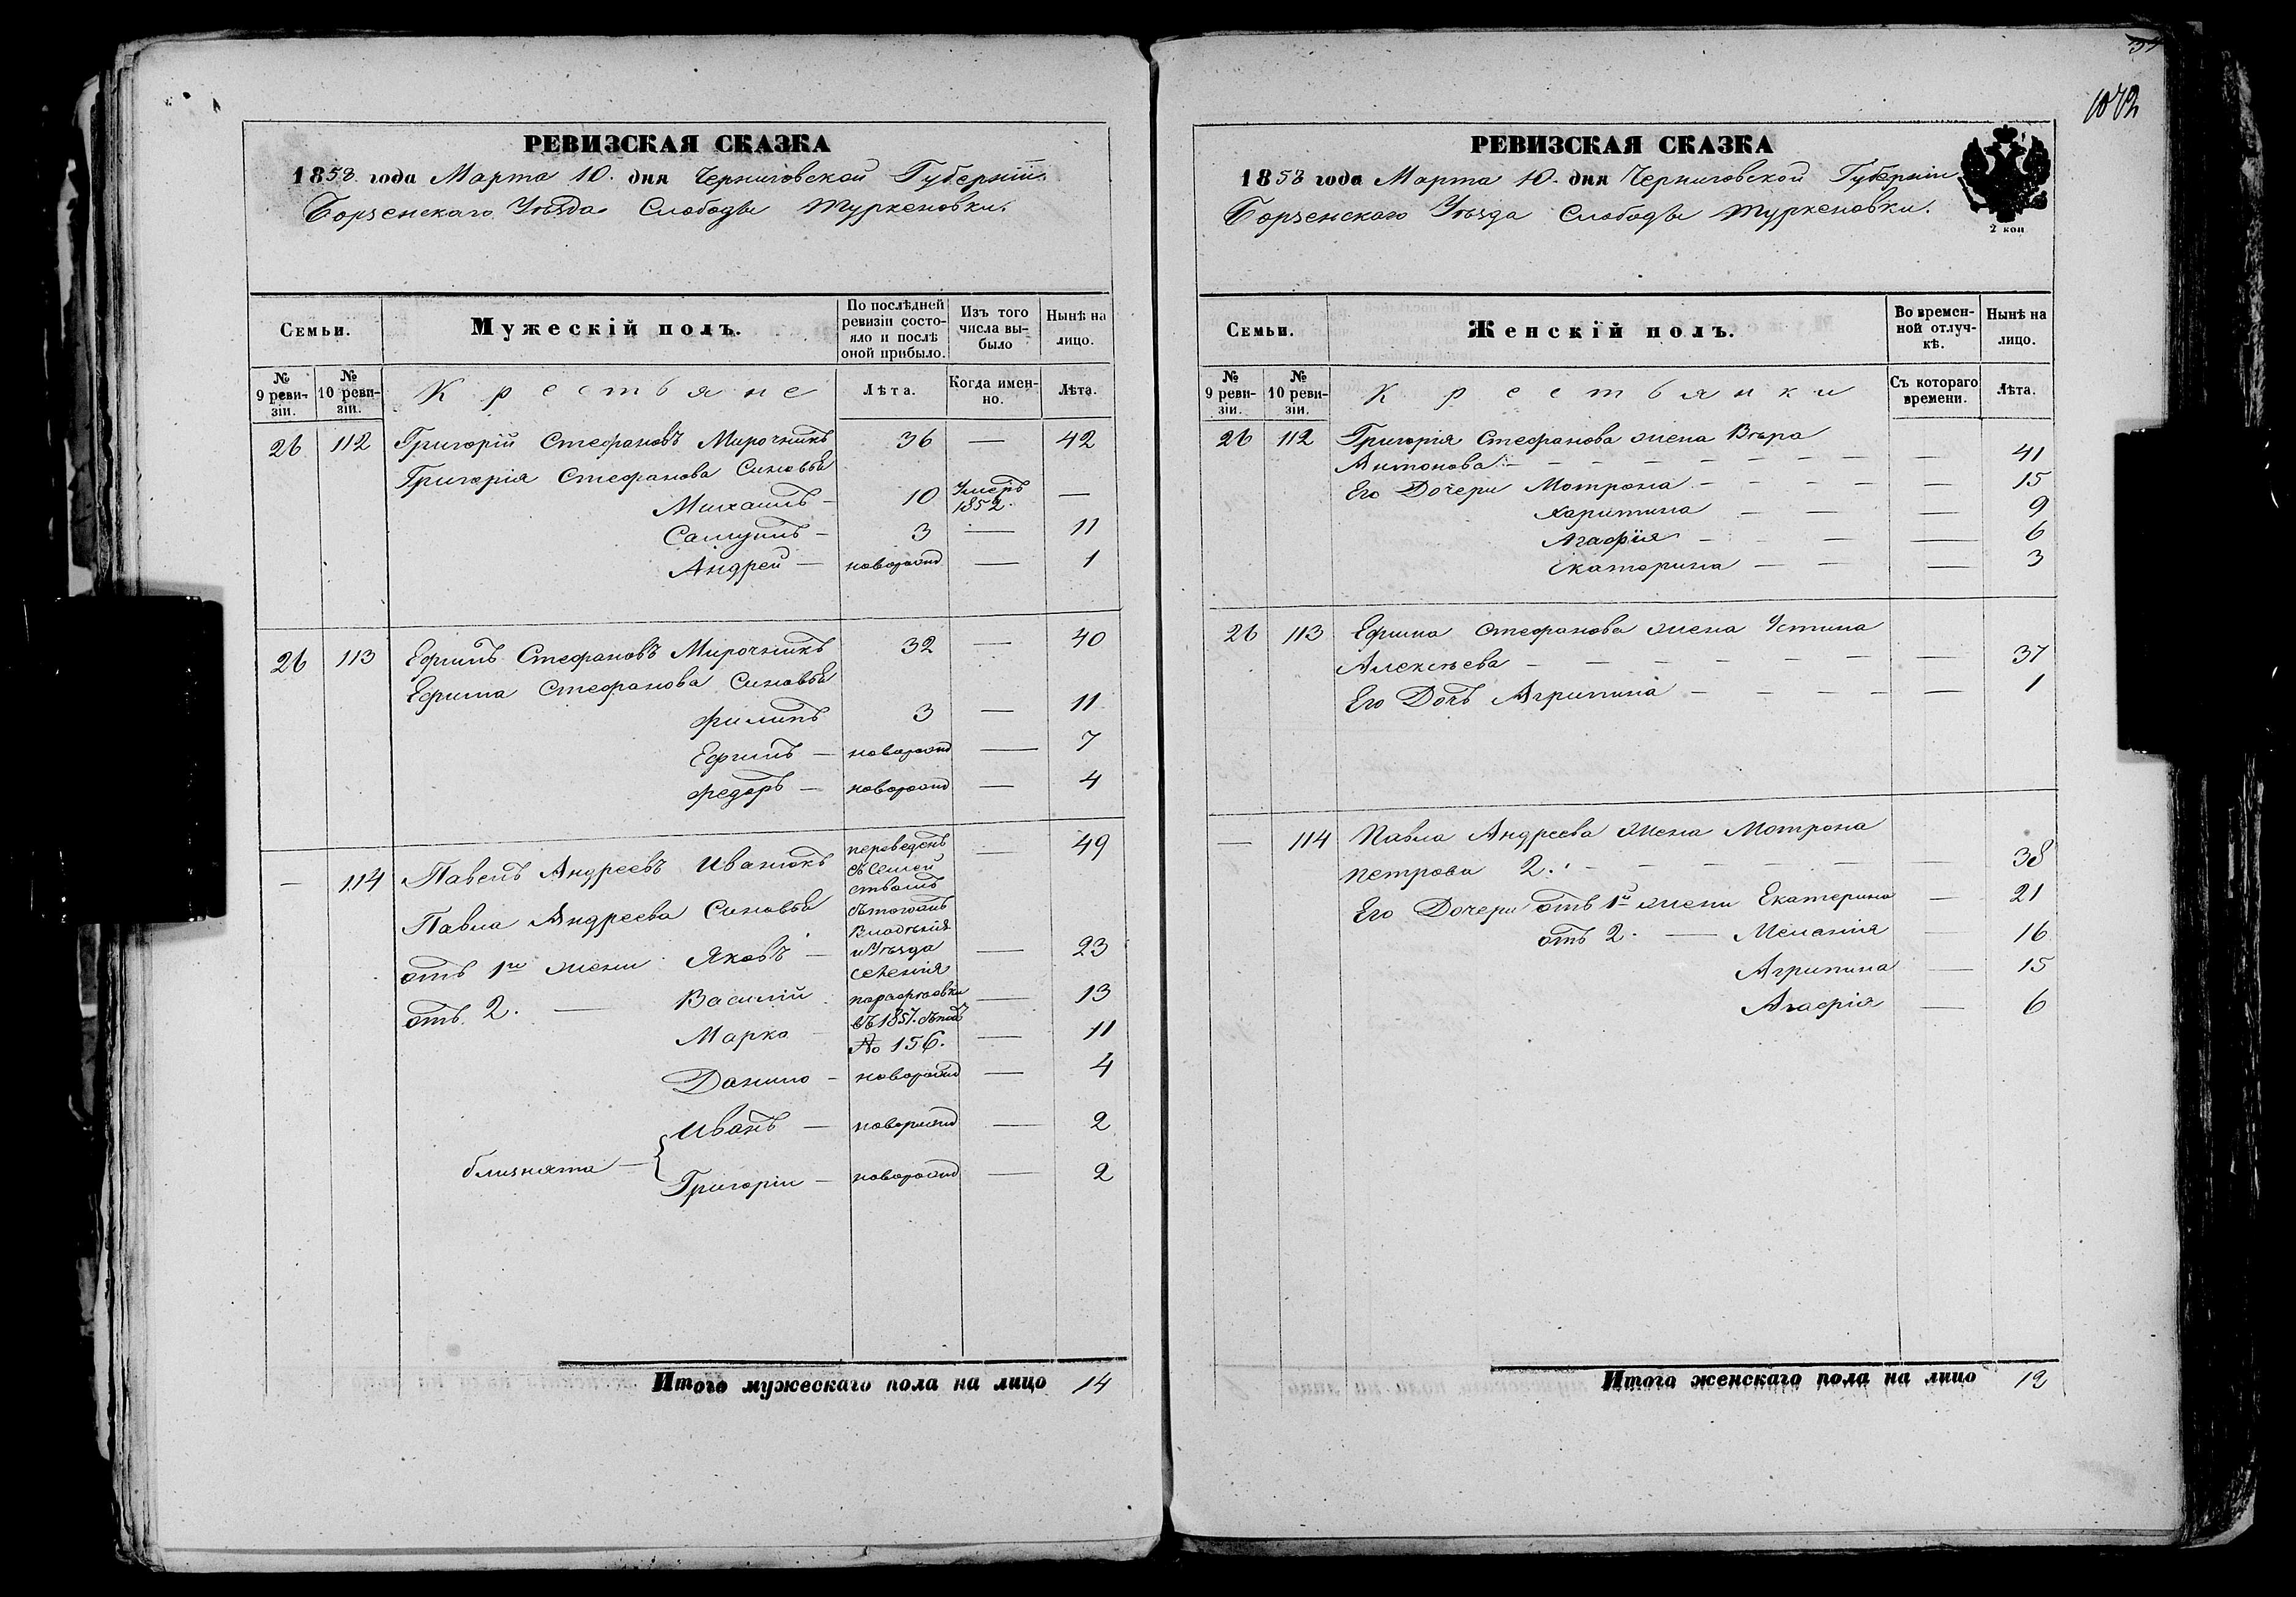 РЕВИЗСКАЯ СКАЗКА
1858 года Марта 10. дня Черниговской Губерніи
Борзенскаго Уѣзда Слободы Туркеновки.
Семьи.
Мужескій полъ.
По послѣдней ревизіи состояло и послѣ оной прибыло.
Изъ того числа выбыло
Нынѣ на лицо.
№ 9 ревизіи.
№ 10 ревизіи.
Крестьяне
Лѣта.
Когда именно.
Лѣта.
26 112 Григорій Стефановъ Мирочникъ 36 — 42
Григорія Стефанова Сыновья
Михаилъ — 10 Умеръ 1852. —
Самуилъ — 3 — 11
Андрей — новорожд — 1
26 113 Ефимъ Стефановъ Мирочникъ 32 — 40
Ефима Стефанова Сыновья
Филипъ 3 — 11
Ефимъ — новорожд — 7
Федоръ — новорожд — 4
— 114 Павелъ Андреевъ Иванюкъ — 49
переведенъ
съ Семей
ствомъ
Павла Андреева Сыновья
владѣнія
и Уѣзда
селенія
отъ 1й жены Яковъ — — 23
отъ 2. — Василій — 13
въ 1857. съ подъ
№ 156.
Марко — — 11
Данило — новорожд — 4
близнята — { Иванъ — новорожд — 2
Григорій — новорожд — 2
Итого мужескаго пола на лицо 14
1072
РЕВИЗСКАЯ СКАЗКА
1858 года Марта 10. дня Черниговской Губерніи
Борзенскаго Уѣзда Слободы Туркеновки.
2 коп
Семьи.
Женскій полъ.
Во временной отлучкѣ.
Нынѣ на лицо.
№ 9 ревизіи.
№ 10 ревизіи.
Крестьянки
Съ котораго времени.
Лѣта.
26 112 Григорія Стефанова жена Вѣра
Антонова — — 41
Его Дочери Мотрона — — 15
Харитина — — 9
Агафія — — 6
Екатерина — — 3
26 113 Ефима Стефанова жена Устина
Алексѣева — — 37
Его Дочь Агрипина — — 1
— 114 Павла Андреева жена Мотрона
Петрова 2. — — 38
Его Дочери отъ 1й жены Екатерина — 21
отъ 2. — Меланія — 16
Агрипина — 15
Агафія — 6
Итого женскаго пола на лицо 12